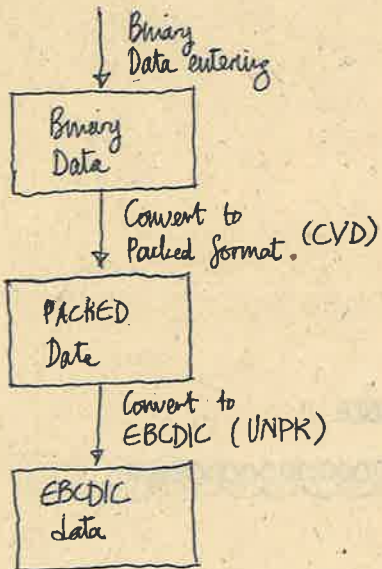 Binary
Data entering
Binary
Data
Convert to
Packed format. (CVD)
PACKED
Data
Convert to
EBCDIC (UNPK)
EBCDIC
data